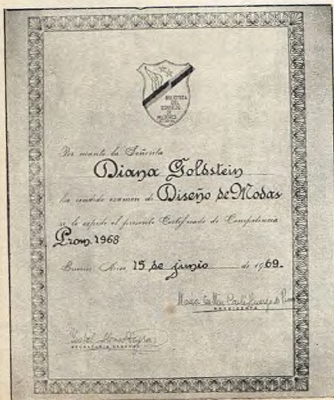 BIBLIOTECA
DEL
CONSEJO
DE
MUJERES
Por cuanto la Señorita
Diana Goldstein
ha rendido examen de Diseño de Modas
se le expide el presente Certificado de Competencia
Prom. 1968
Buenos Aires 15 de junio de 1969.
PRESIDENTA
SECRETARIA GENERAL